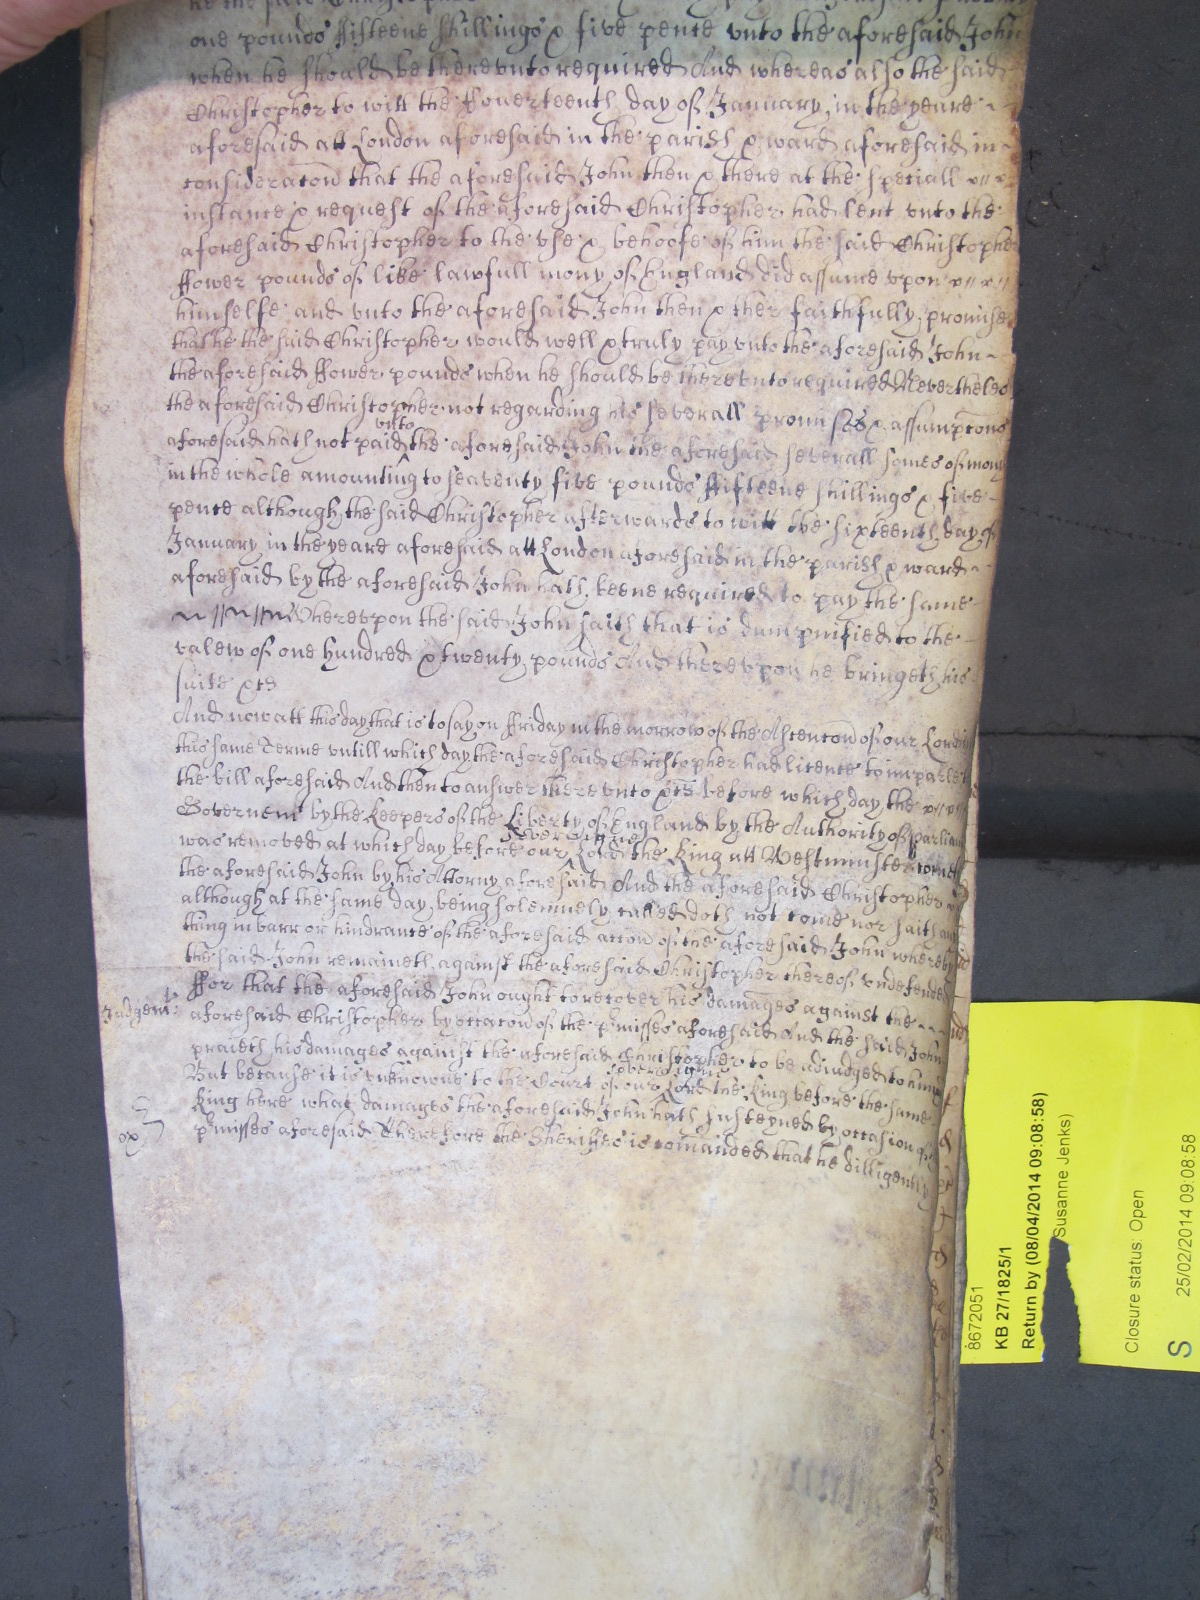 he the said Christopher
one pounds ffifteene shillings & five pence vnto the aforesaid John
when he should be therevnto required And whereas also the said
Christopher to witt the ffowerteenth day of January in the yeare
aforesaid att London aforesaid in the parish & ward aforesaid in
consideracon that the aforesaid John then & there at the speciall
instance & request of the aforesaid Christopher had lent vnto the
aforesaid Christopher to the vse & behoofe of him the said Christopher
ffower pounds of like lawfull mony of England did assume vpon
himselfe and vnto the aforesaid John then & ther faithfully promise
that he the said Christopher would well & truly pay vnto the aforesaid John
the aforesaid ffower pounds when he should be therevnto required Neverthelesse
the aforesaid Christopher not regarding his severall promises & assumptons
aforesaid hath not paid vnto the aforesaid John the aforesaid severall somes of mony
in the whole amounting to seaventy five pounds ffifteene shillings & five
pence although the said Christopher afterwards to witt the sixteenth day of
January in the yeare aforesaid att London aforesaid in the parish & ward
aforesaid by the aforesaid John hath beene required to pay the same
Wherevpon the said John saith that is damnified to the
valew of one hundred & twenty pounds And therevpon he bringeth his
suite &c
And now att this day that is to say on ffriday in the morrow of the Ascencon of our Lord in
this same Terme vntill which day the aforesaid Christopher had licence to imparle to
the bill aforesaid And then to answer there vnto &c before which day the
Governemt by the Keepers of the Liberty of England by the Authority of parliamt
was removed at which day before our Sovereigne Lord the King att Westminster cometh
the aforesaid John by his Attorny aforesaid And the aforesaid Christopher
although at the same day being solemnely called doth not come nor saith any
thing in barr or hindrance of the aforesaid accon of the aforesaid John whereby
the said John remaineth against the aforesaid Christopher thereof vndefended
Judgemt:
ffor that the aforesaid John ought to recover his damages against the
aforesaid Christopher by occacon of the pmisses aforesaid And the said John
praieth his damages against the aforesaid Christopher to be adiudged to him &c
But because it is vnknowne to the Court of our Sovereigne Lord the King before the same
King here what damages the aforesaid John hath susteyned by occasion of the
pmisses aforesaid Therefore the Sheriffes is comanded that he dilligently
8672051
KB 27/1825/1
Return by (08/04/2014 09:08:58)
Susanne Jenks)
Closure status: Open
S
25/02/2014 09:08:58